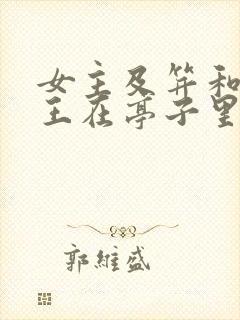 女主及笄和
王在亭子里
郭維盛